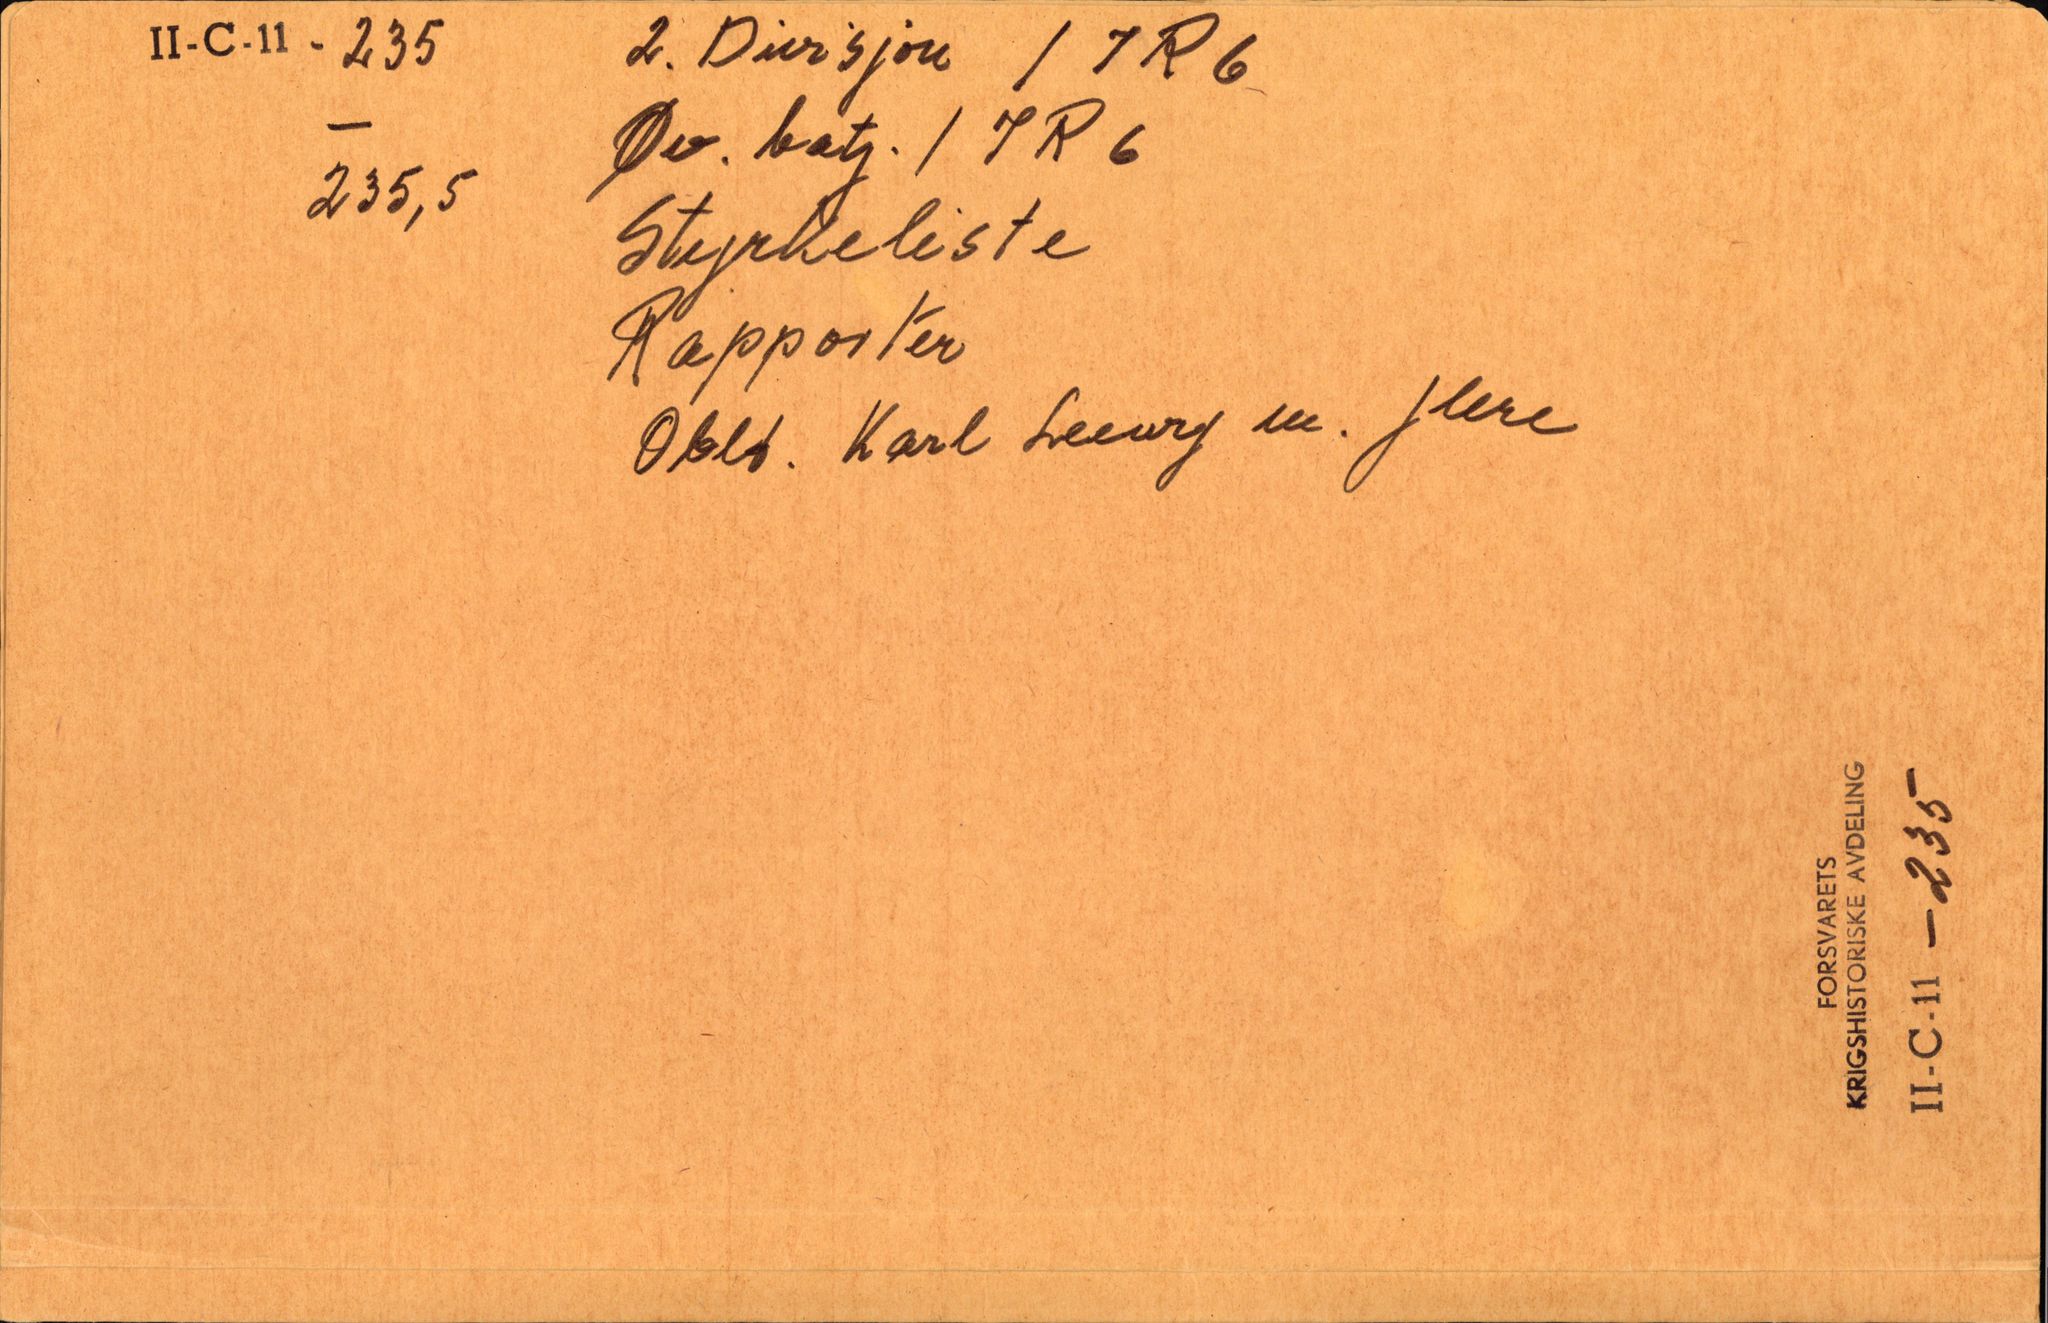 II-C-11 - 235
—
235,5
2. Divisjon / IR 6
Øv. batj. / IR 6
Styrkeliste
Rapporter
Obld. Karl m. flere
FORSVARETS
KRIGSHISTORISKE AVDELING
II-C-11 - 235